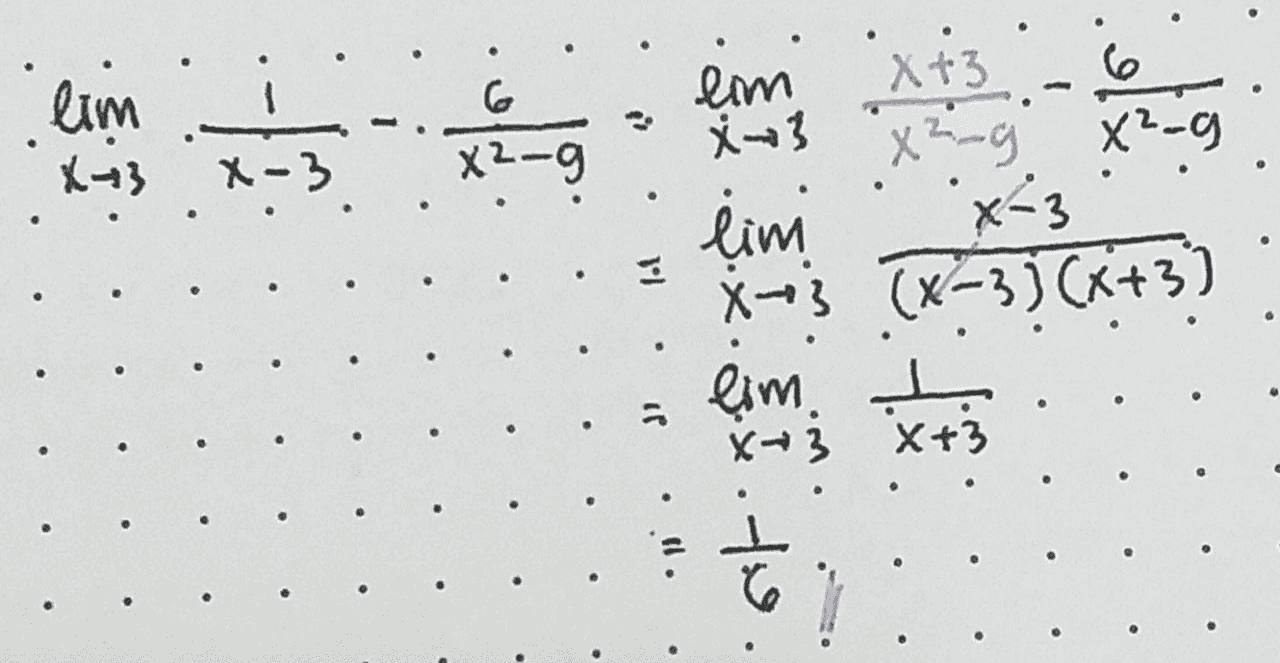 lim x→3 1/(x-3) - 6/(x²-9) = lim x→3 (x+3)/(x²-9) - 6/(x²-9)
= lim x→3 (x-3)/((x-3)(x+3))
= lim x→3 1/(x+3)
= 1/6